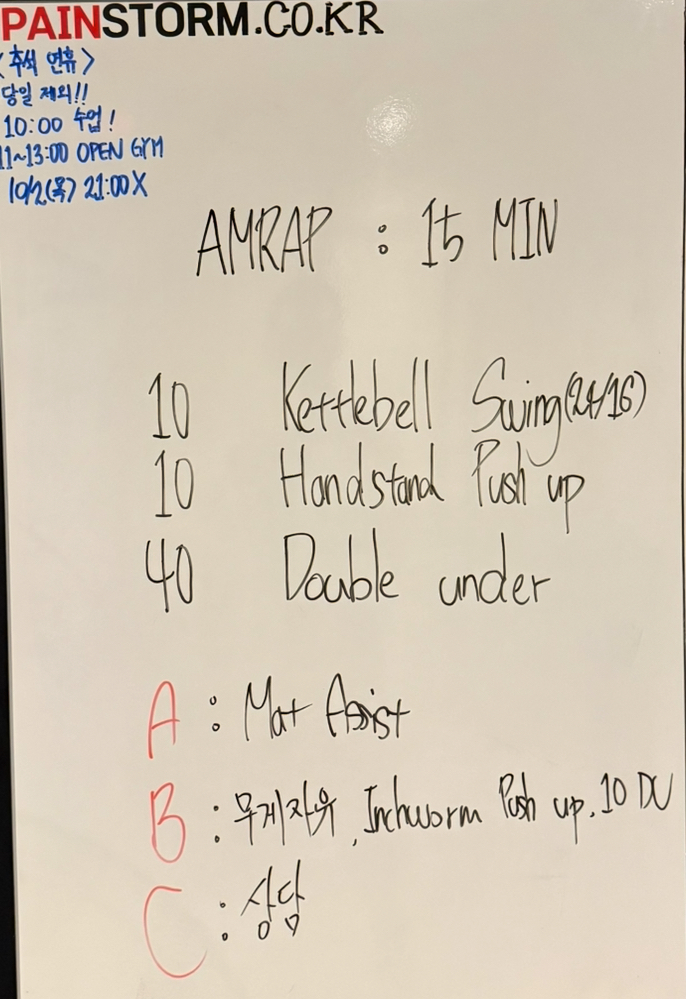 PAINSTORM.CO.KR
<추석 연휴>
당일 제외!!
10:00 수업!
11~13:00 OPEN GYM
10/2(목) 21:00 X
AMRAP : 15 MIN
10 Kettlebell Swing(24/16)
10 Handstand Push up
40 Double under
A : Mat Assist
B : 무게자유, Inchworm Push up, 10 DU
C : 상담